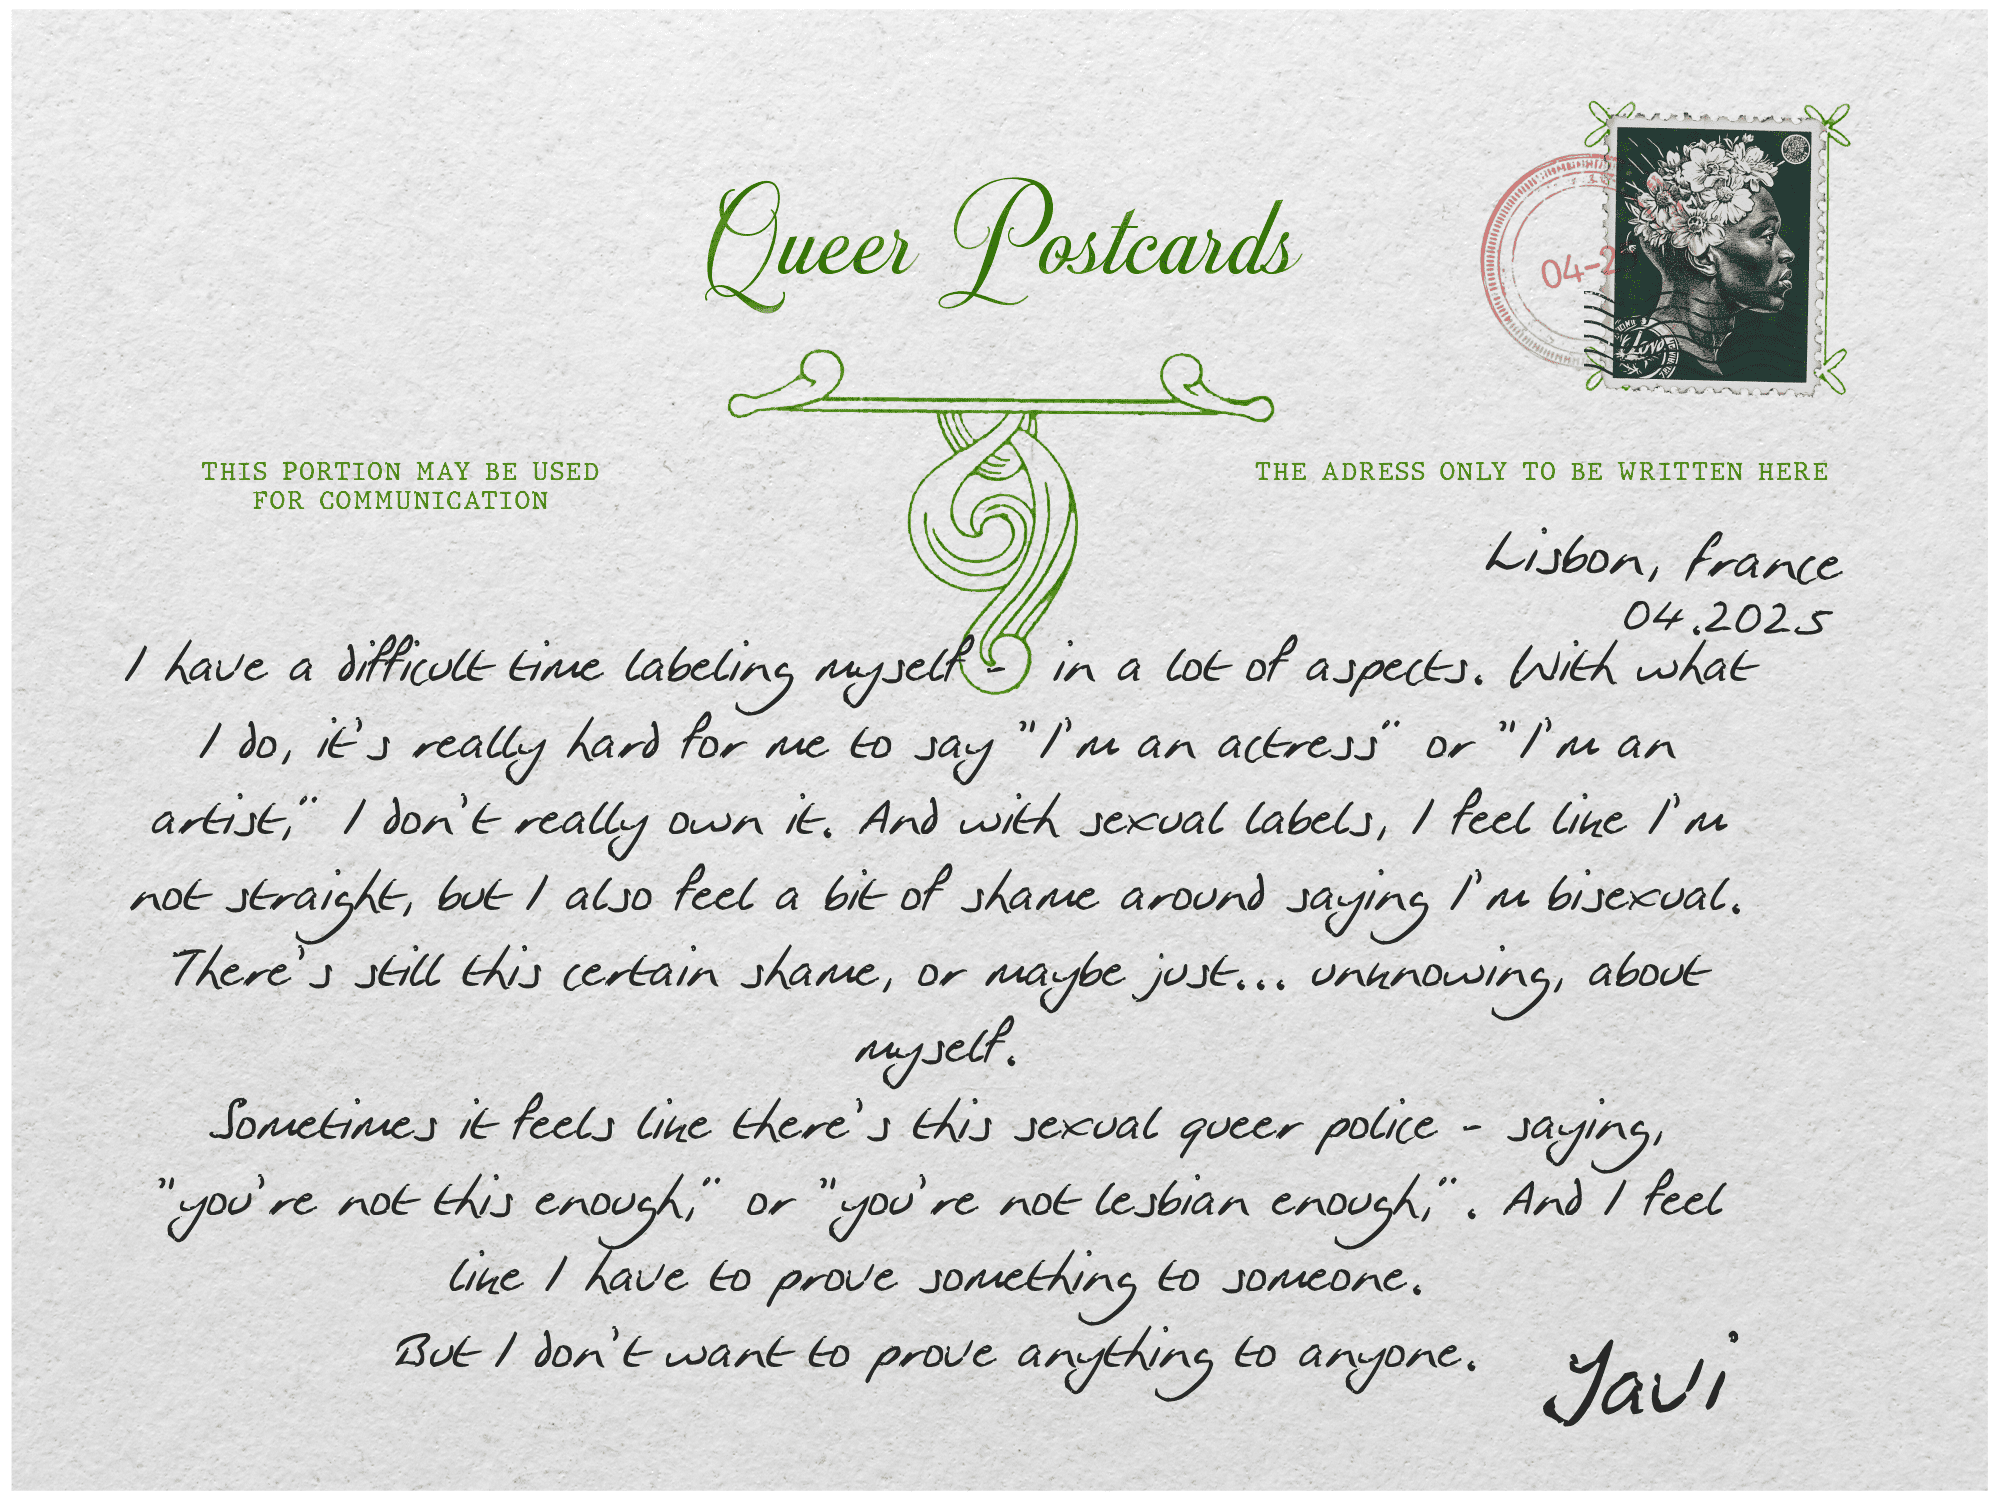 Queer Postcards
04-2
THIS PORTION MAY BE USED
FOR COMMUNICATION
THE ADRESS ONLY TO BE WRITTEN HERE
Lisbon, france
04.2025
I have a difficult time labeling myself - in a lot of aspects. With what
I do, it's really hard for me to say "I'm an actress" or "I'm an
artist," I don't really own it. And with sexual labels, I feel like I'm
not straight, but I also feel a bit of shame around saying I'm bisexual.
There's still this certain shame, or maybe just... unknowing, about
myself.
Sometimes it feels like there's this sexual queer police - saying,
"you're not this enough," or "you're not lesbian enough,". And I feel
like I have to prove something to someone.
But I don't want to prove anything to anyone.
Yavi